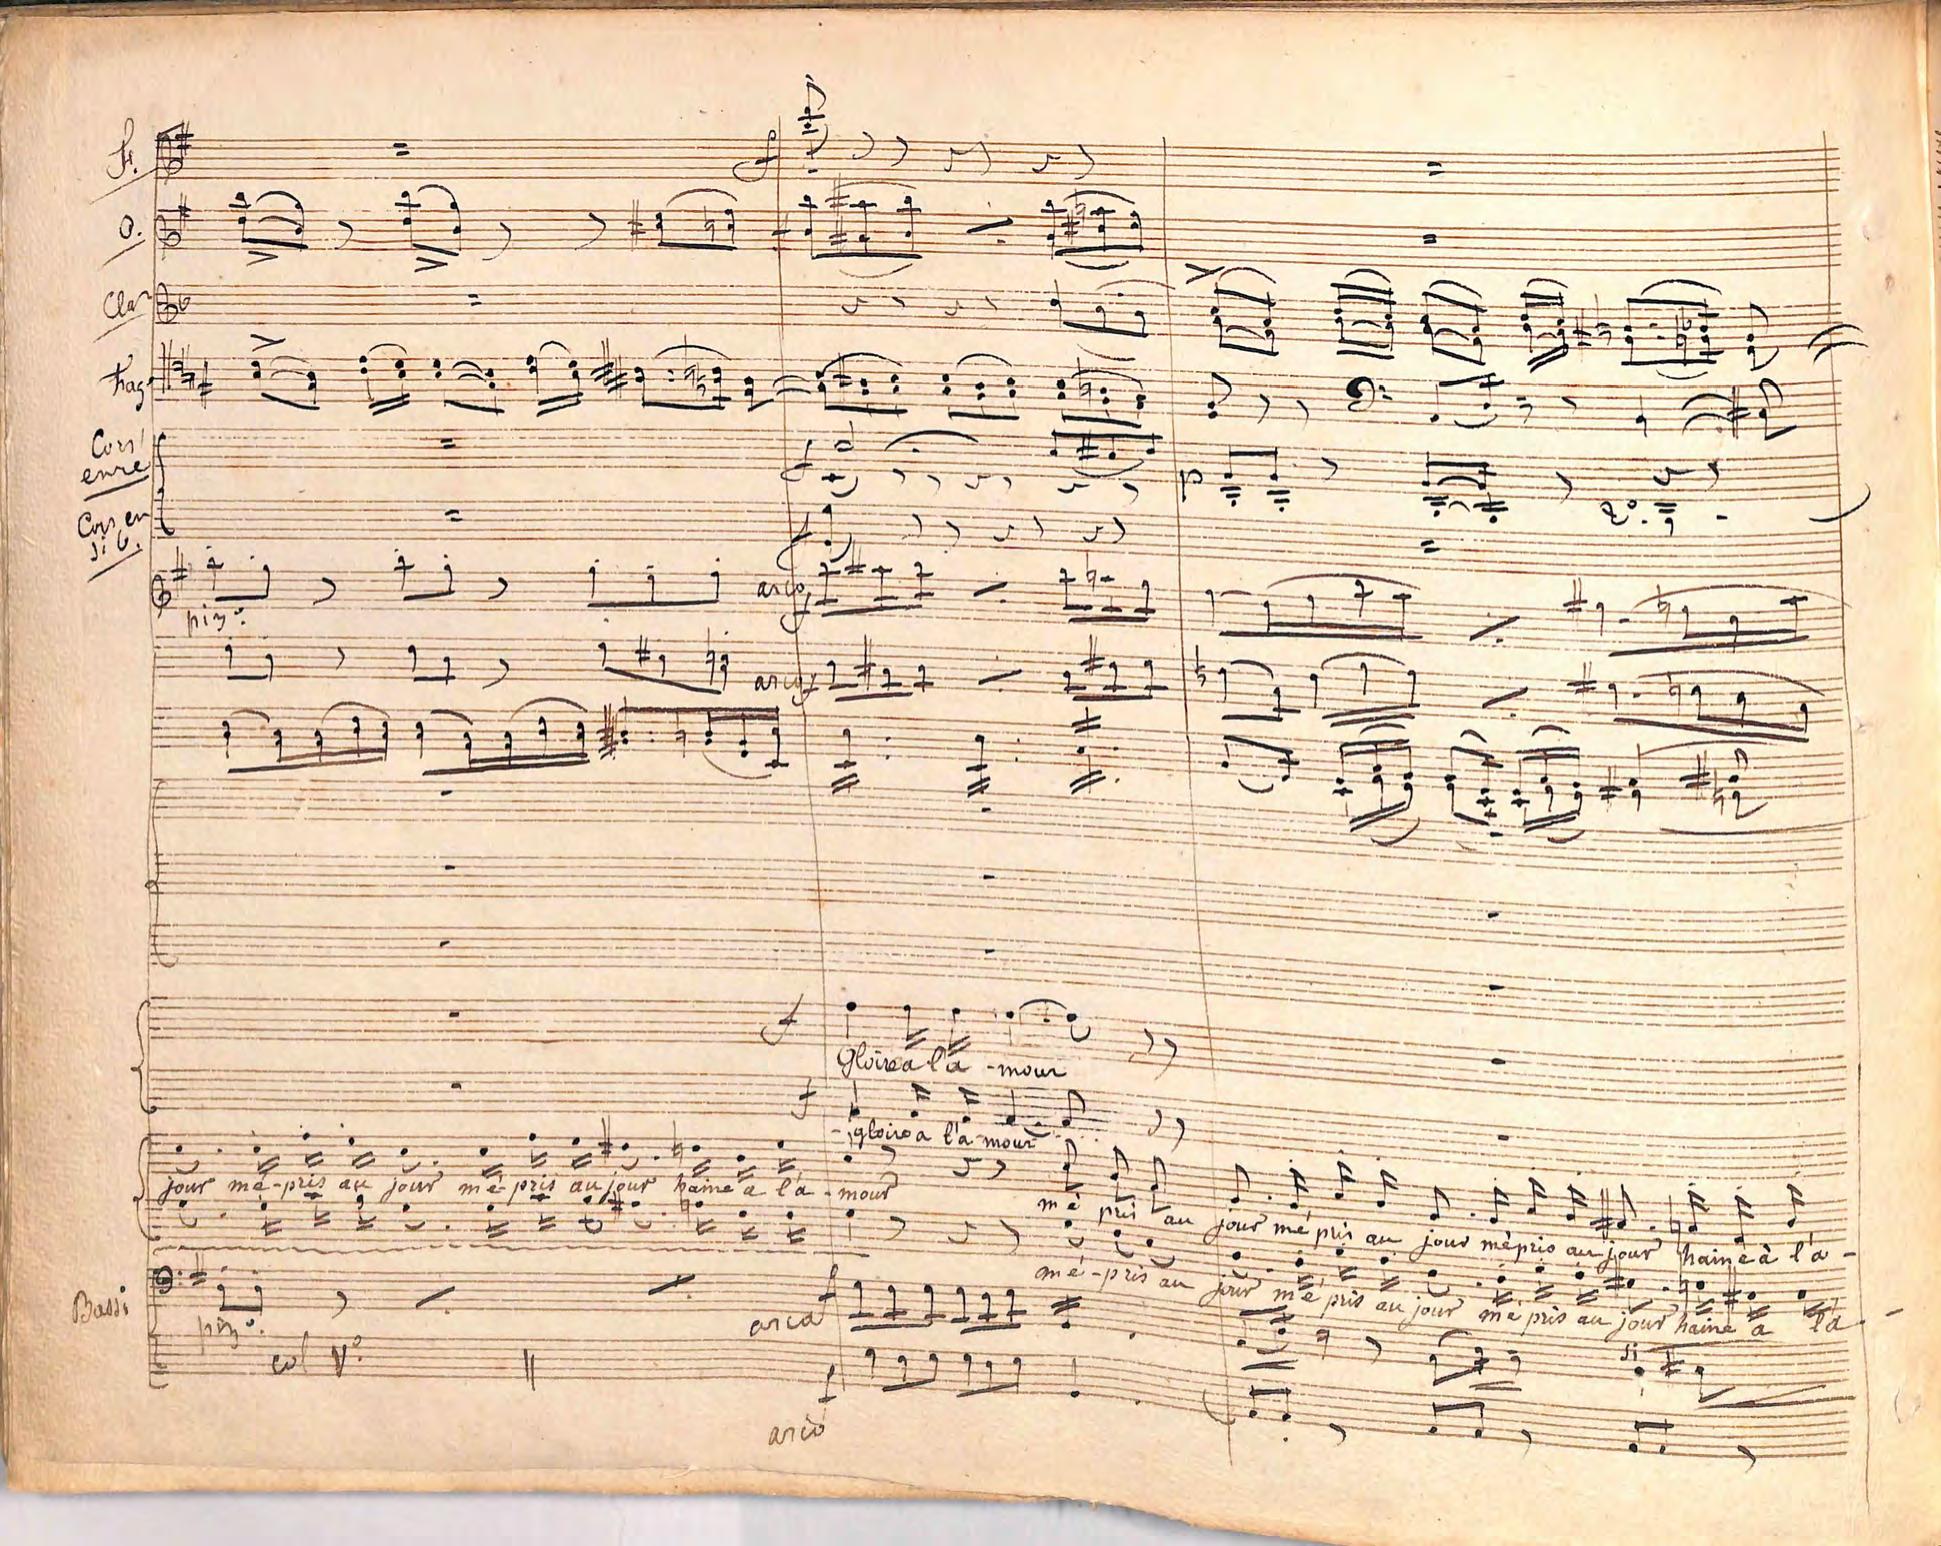 F.
O.
Clar
Fag
Cors
en re
Cors en
si b.
f
piz°.
arco f
arco f
f
p
2°.
f
f
Gloire a l'a - mour
f
gloire a l'a - mour
jour mé - pris au jour mé - pris au jour haine a l'a - mour
mé pris au jour mé pris au jour mépris au jour haine à l'a -
mé - pris au jour mé pris au jour mé pris au jour haine a l'a -
Bassi
piz°.
arco f
col V°.
f
si
arco